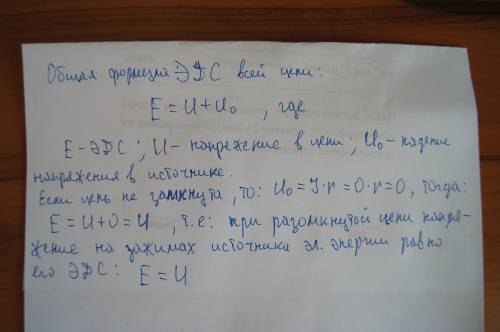 Общая формула ЭДС всей цепи:
E = U + U₀ , где
E - ЭДС ; U - напряжение в цепи ; U₀ - падение
напряжения в источнике.
Если цепь не замкнута , то: U₀ = I·r = 0·r = 0 , тогда:
E = U + 0 = U , т.е: при разомкнутой цепи напря-
жение на зажимах источника эл. энергии равно
его ЭДС : E = U